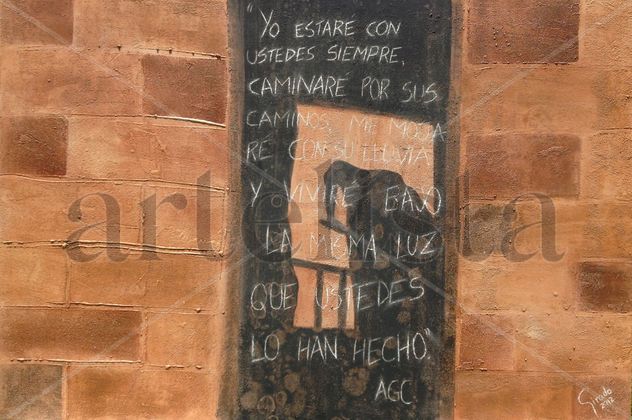 "YO ESTARE CON
USTEDES SIEMPRE,
CAMINARE POR SUS
CAMINOS, ME MOJA
RE CON SU LLUVIA
Y VIVIRE BAJO
LA MISMA LUZ
QUE USTEDES
LO HAN HECHO".
AGC
artelista
Girado